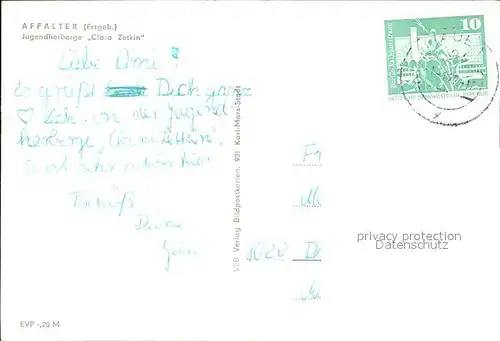 AFFALTER (Erzgeb.)
Jugendherberge „Clara Zetkin"
Liebe Omi!
Es grüßt Dich ganz
♡ lich, von der Jugend
herberge „Clara Zetkin".
Es ist sehr schön hier.
Tschüß
Deine
VEB Verlag Bildpostkarten, 901 Karl-Marx-Stadt
10
Fr
M
8020 D
privacy protection
Datenschutz
EVP -,20 M